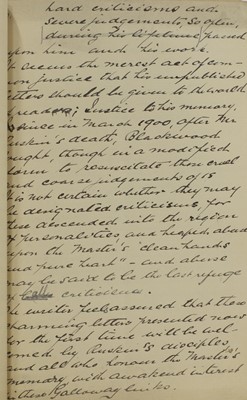 hard criticisms and
severe judgements, so often,
during his lifetime, passed
upon him and his work.
it seems the merest act of com-
mon justice that his unpublished
letters should be given to the world
of readers; justice to his memory,
since in March 1900, after Mr
Ruskin's death, Blackwood
ought, though in a modified
form to resuscitate those cruel
and coarse judgements of 18
It is not certain whether they may
be designated criticisms, for
descended into the region
of personalities, and heaped, abuse
upon the Master's "clean hands
and pure heart" - and abuse
may be said to be the last refuge
of criticism.
The writer feels assured that these
charming letters presented now
for the first time will be wel-
comed by Ruskin's disciples,
and all who honour the Master's
memory, with awakened interest
in these Galloway links.